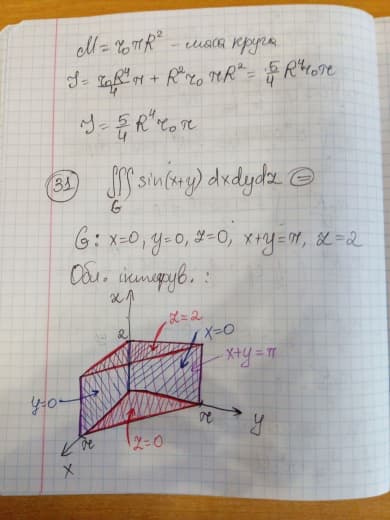 M = γ₀πR² – маса круга
J = γ₀R⁴/4 π + R²γ₀ πR² = 5/4 R⁴γ₀π
J = 5/4 R⁴ γ₀ π
31 ∭ sin(x+y) dxdydz =
G
G: x=0, y=0, z=0, x+y=π, z=2
Обл. інтегрув.:
z
z=2
2
x=0
x+y=π
y=0
π
y
π
z=0
x